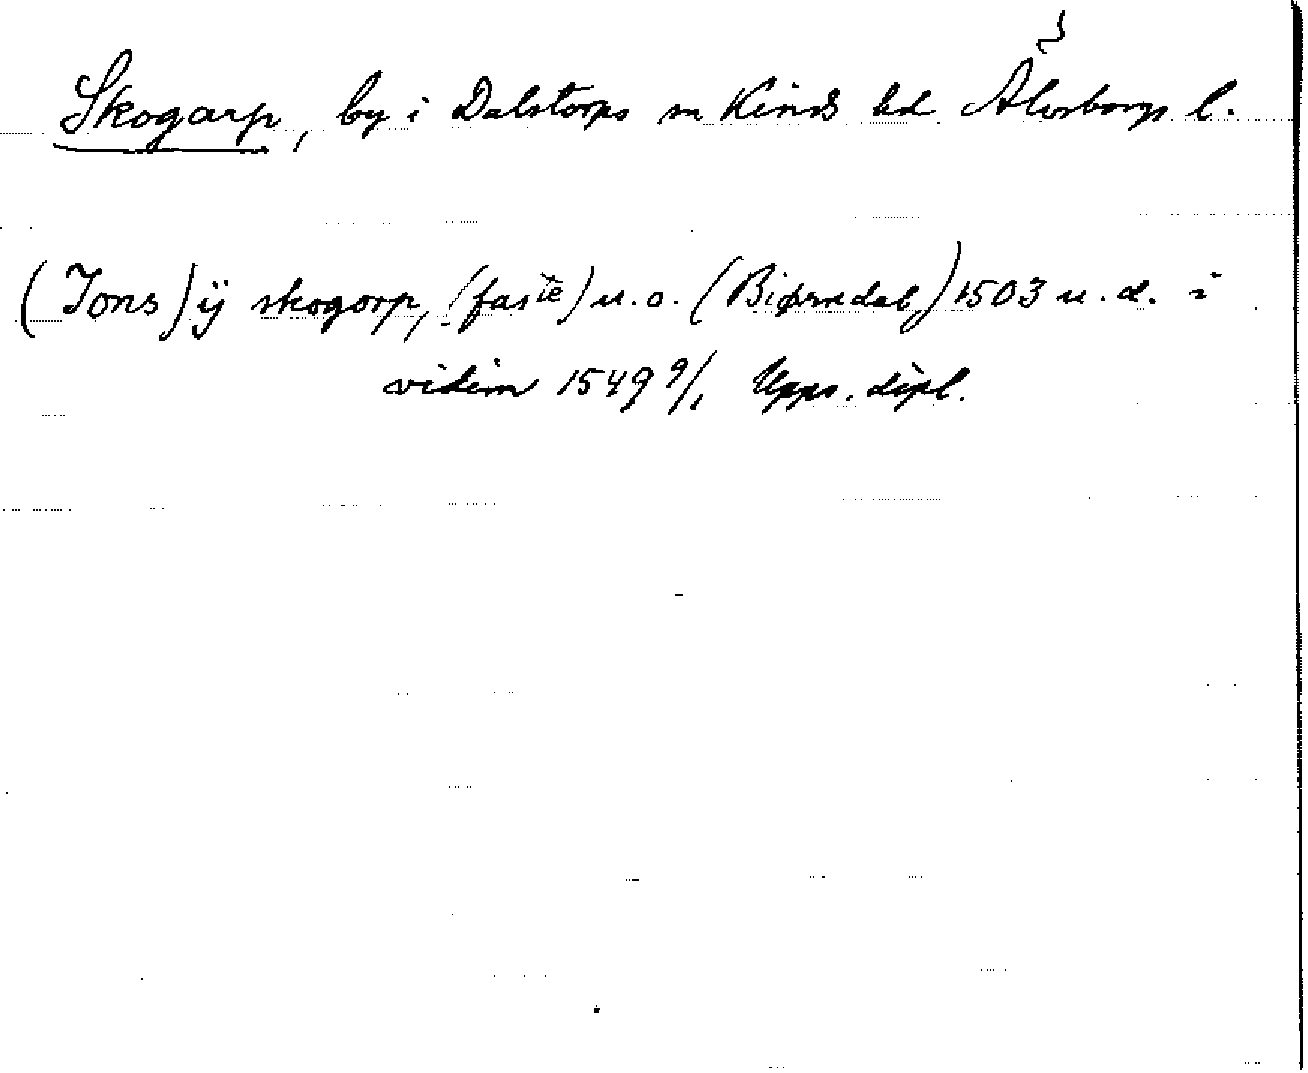 Skogarp, by i Dalstorps sn Kinds hd Älvsborgs l.
(Jons) ij skogorp, (faste) u.o. (Biørnedal,) 1503 u.d. i
vidim 1549 9/1 Upps. dipl.